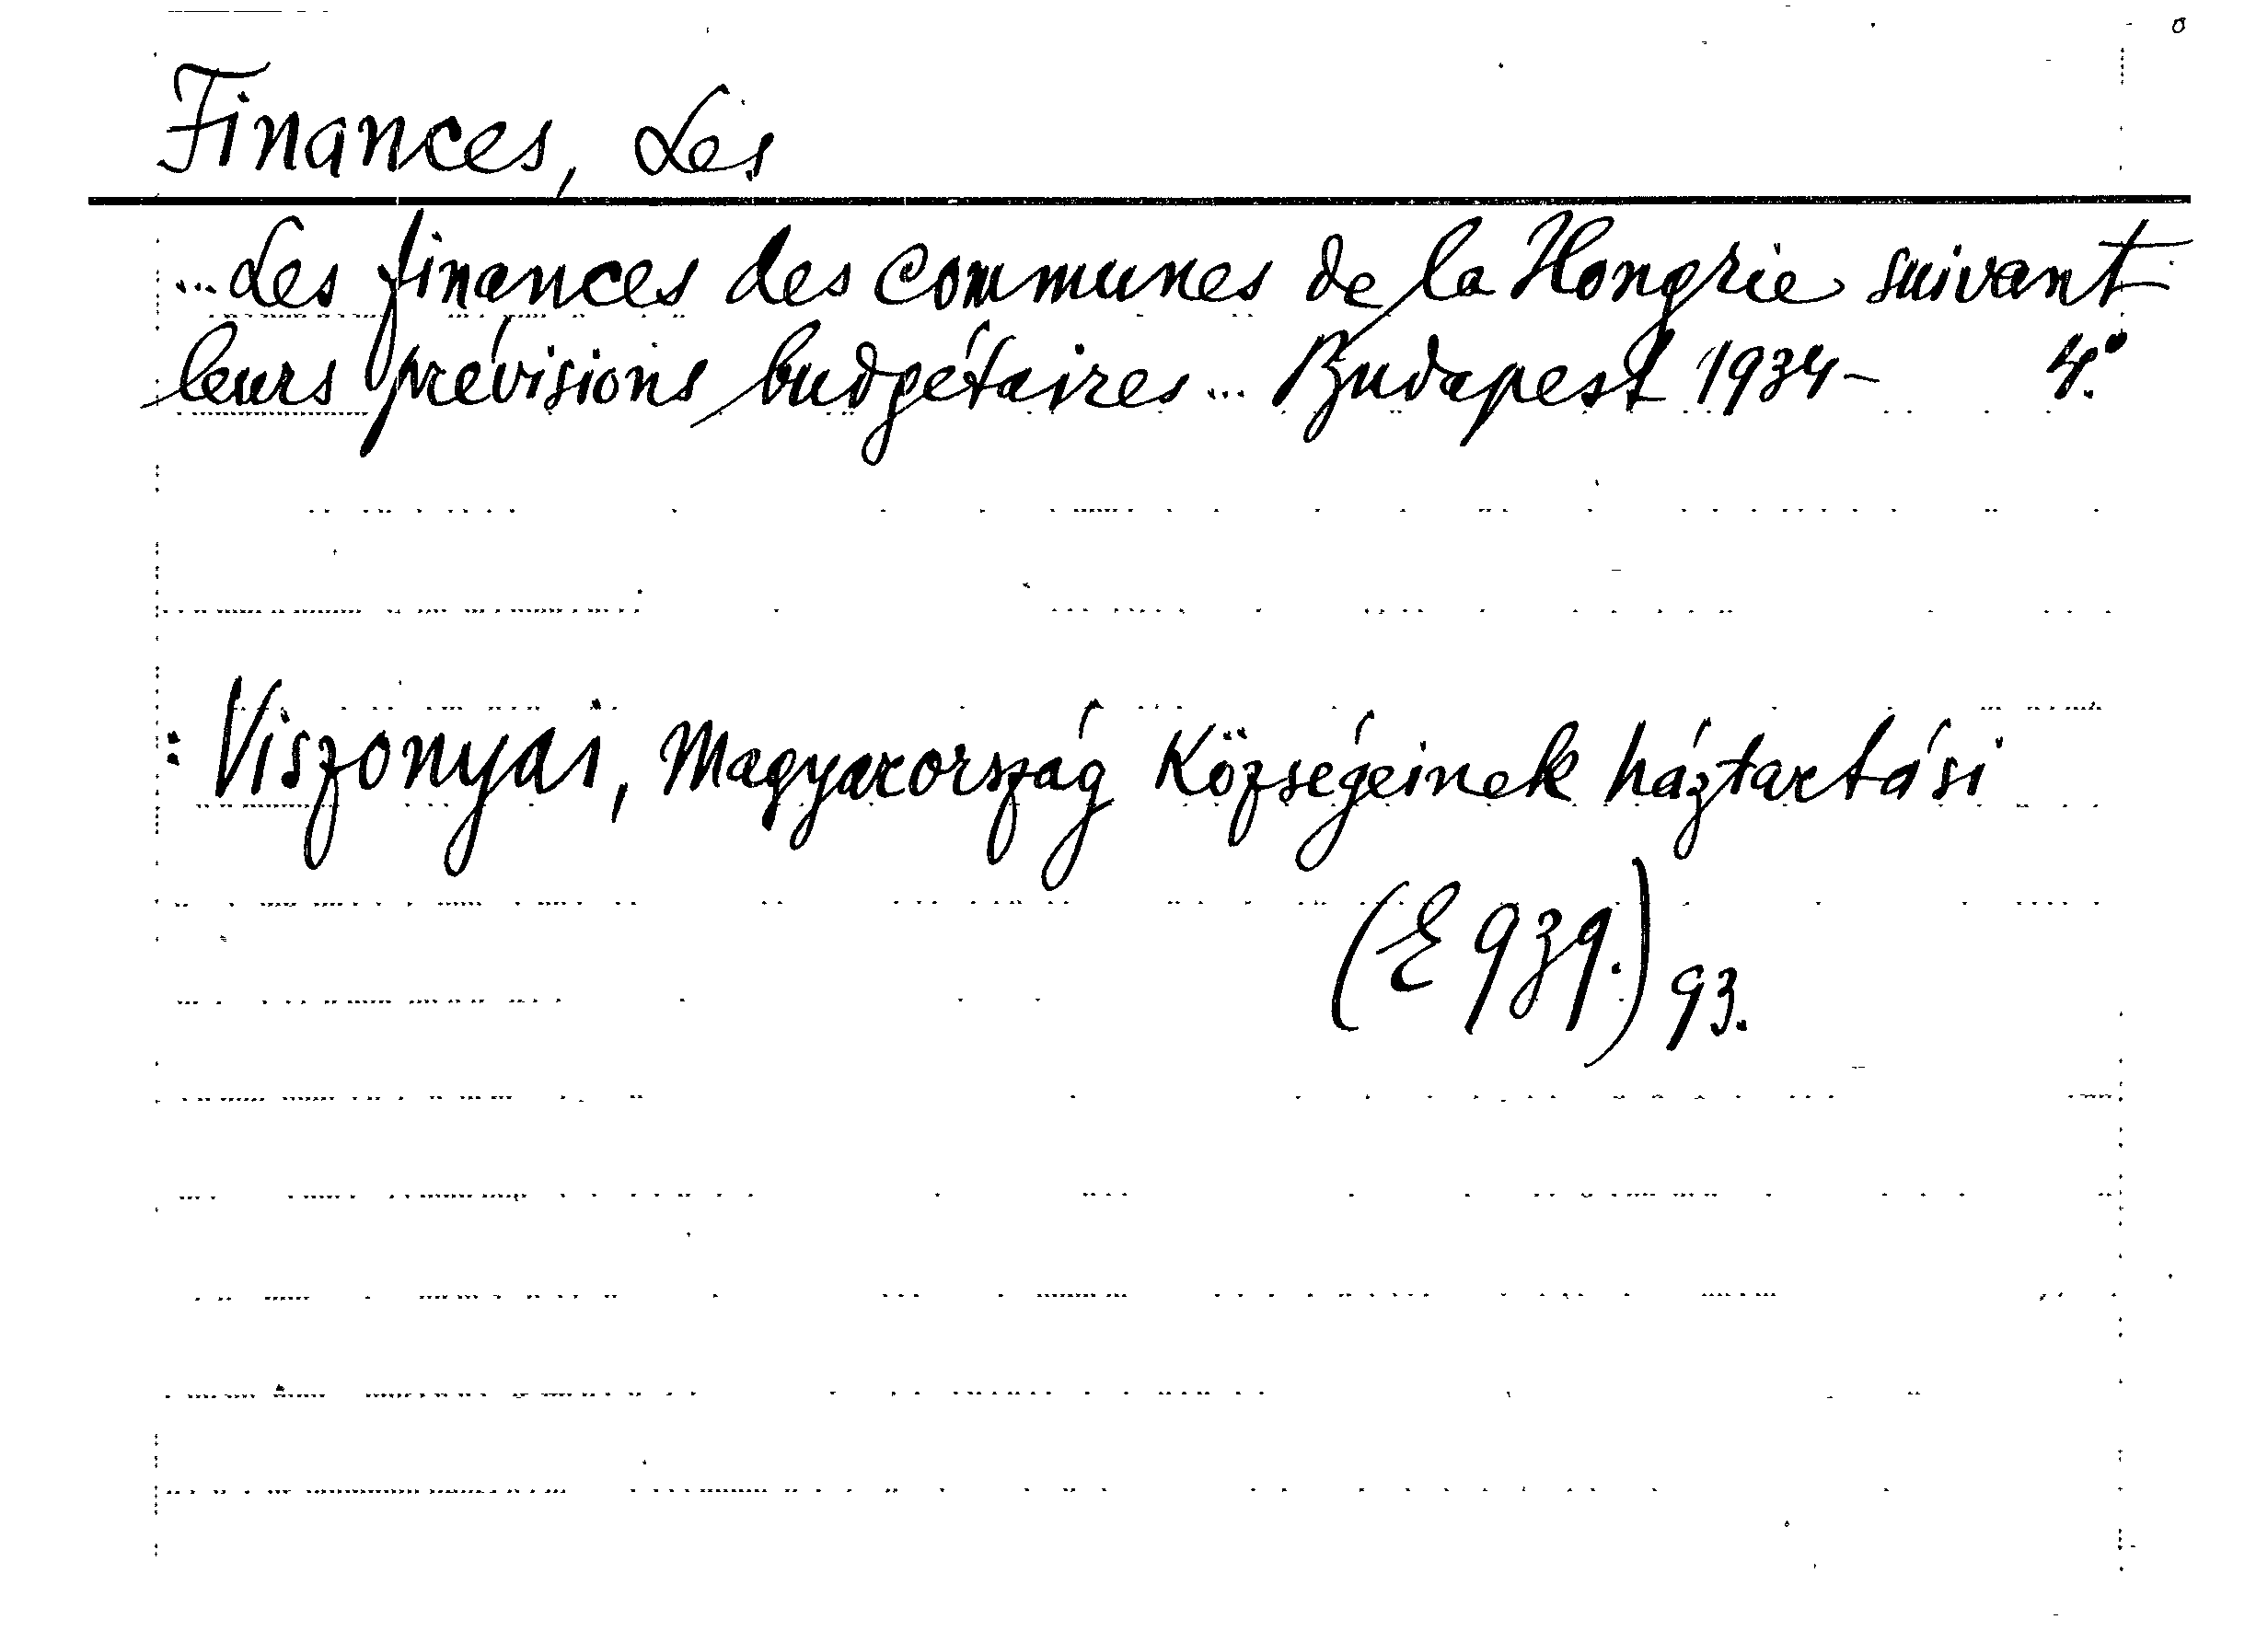 Finances, Les
...Les finances des communes de la Hongrie suivant
leurs prévisions budgétaires... Budapest 1934- 4.°
: Viszonyai, Magyarország Községeinek háztartási
(E 939.) 93.